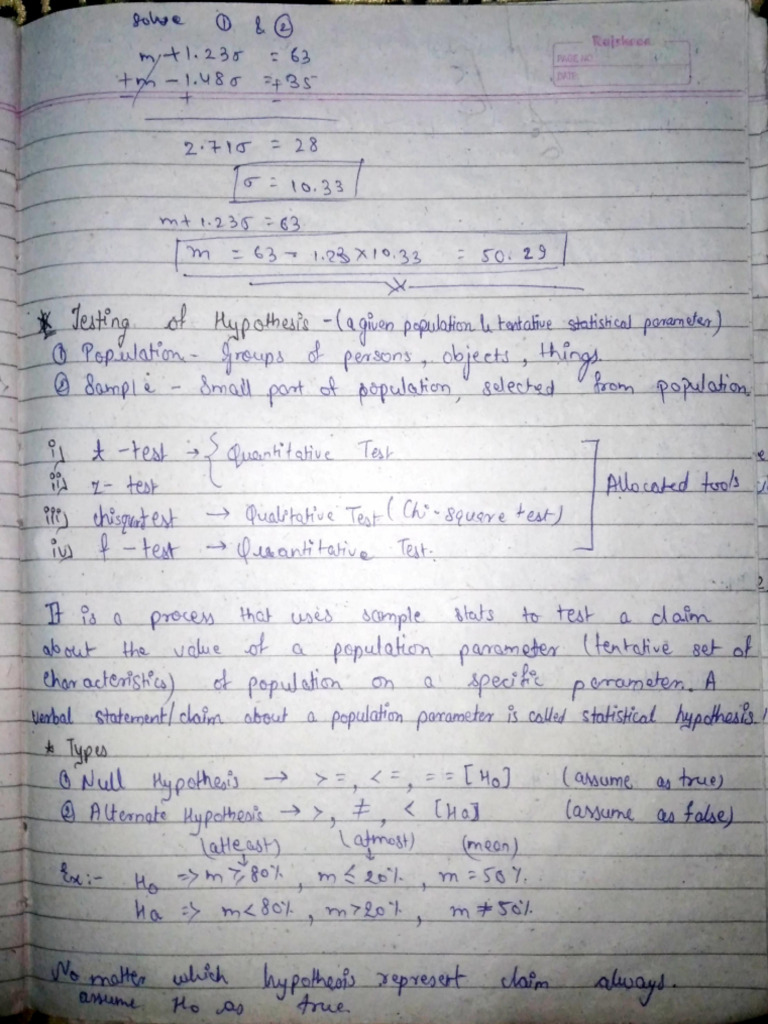 Solve ① & ②
Rajshree
PAGE NO
DATE
m + 1.23σ = 63
+m - 1.48σ = +35
- + -
2.71σ = 28
σ = 10.33
m + 1.23σ = 63
m = 63 - 1.23 × 10.33 = 50.29
* Testing of Hypothesis - (a given population & tentative statistical parameter)
① Population - Groups of persons, objects, things.
② Sample - Small part of population, selected from population.
i) t - test → { Quantitative Test
ii) z - test
Allocated tools
iii) chisquatest → Qualitative Test (Chi-square test)
iv) f - test → Quantitative Test.
It is a process that uses sample stats to test a claim
about the value of a population parameter (tentative set of
characteristics) of population on a specific parameter. A
verbal statement/claim about a population parameter is called statistical hypothesis.
* Types
① Null Hypothesis → >=, <=, == [H₀] (assume as true)
② Alternate Hypothesis → >, ≠, < [Ha] (assume as false)
(atleast) (atmost) (mean)
Ex:- H₀ => m ≥ 80%, m ≤ 20%, m = 50%.
Ha => m < 80%, m > 20%, m ≠ 50%.
No matter which hypothesis represent claim always.
assume H₀ as true.